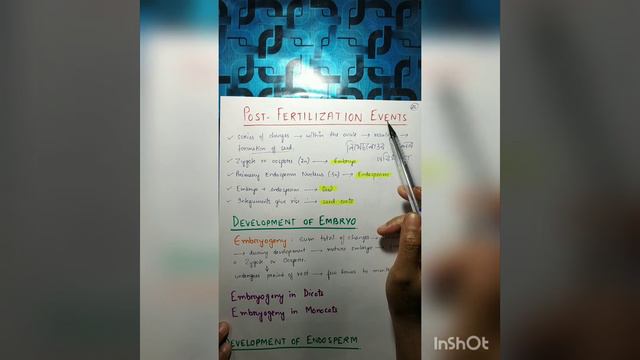 POST-FERTILIZATION EVENTS
✓ Series of changes → within the ovule → →
formation of seed.
✓ Zygote or oospore (2n) → Embryo
✓ Primary Endosperm Nucleus (3n) → Endosperm
✓ Embryo + endosperm →
✓ Integuments give rise → seed coats
DEVELOPMENT OF EMBRYO
Embryogeny : sum total of changes →
→ during development → mature embryo
Zygote or Oospore.
undergoes period of rest → few hours to
Embryogeny in Dicots
Embryogeny in Monocots
DEVELOPMENT OF ENDOSPERM
InShOt